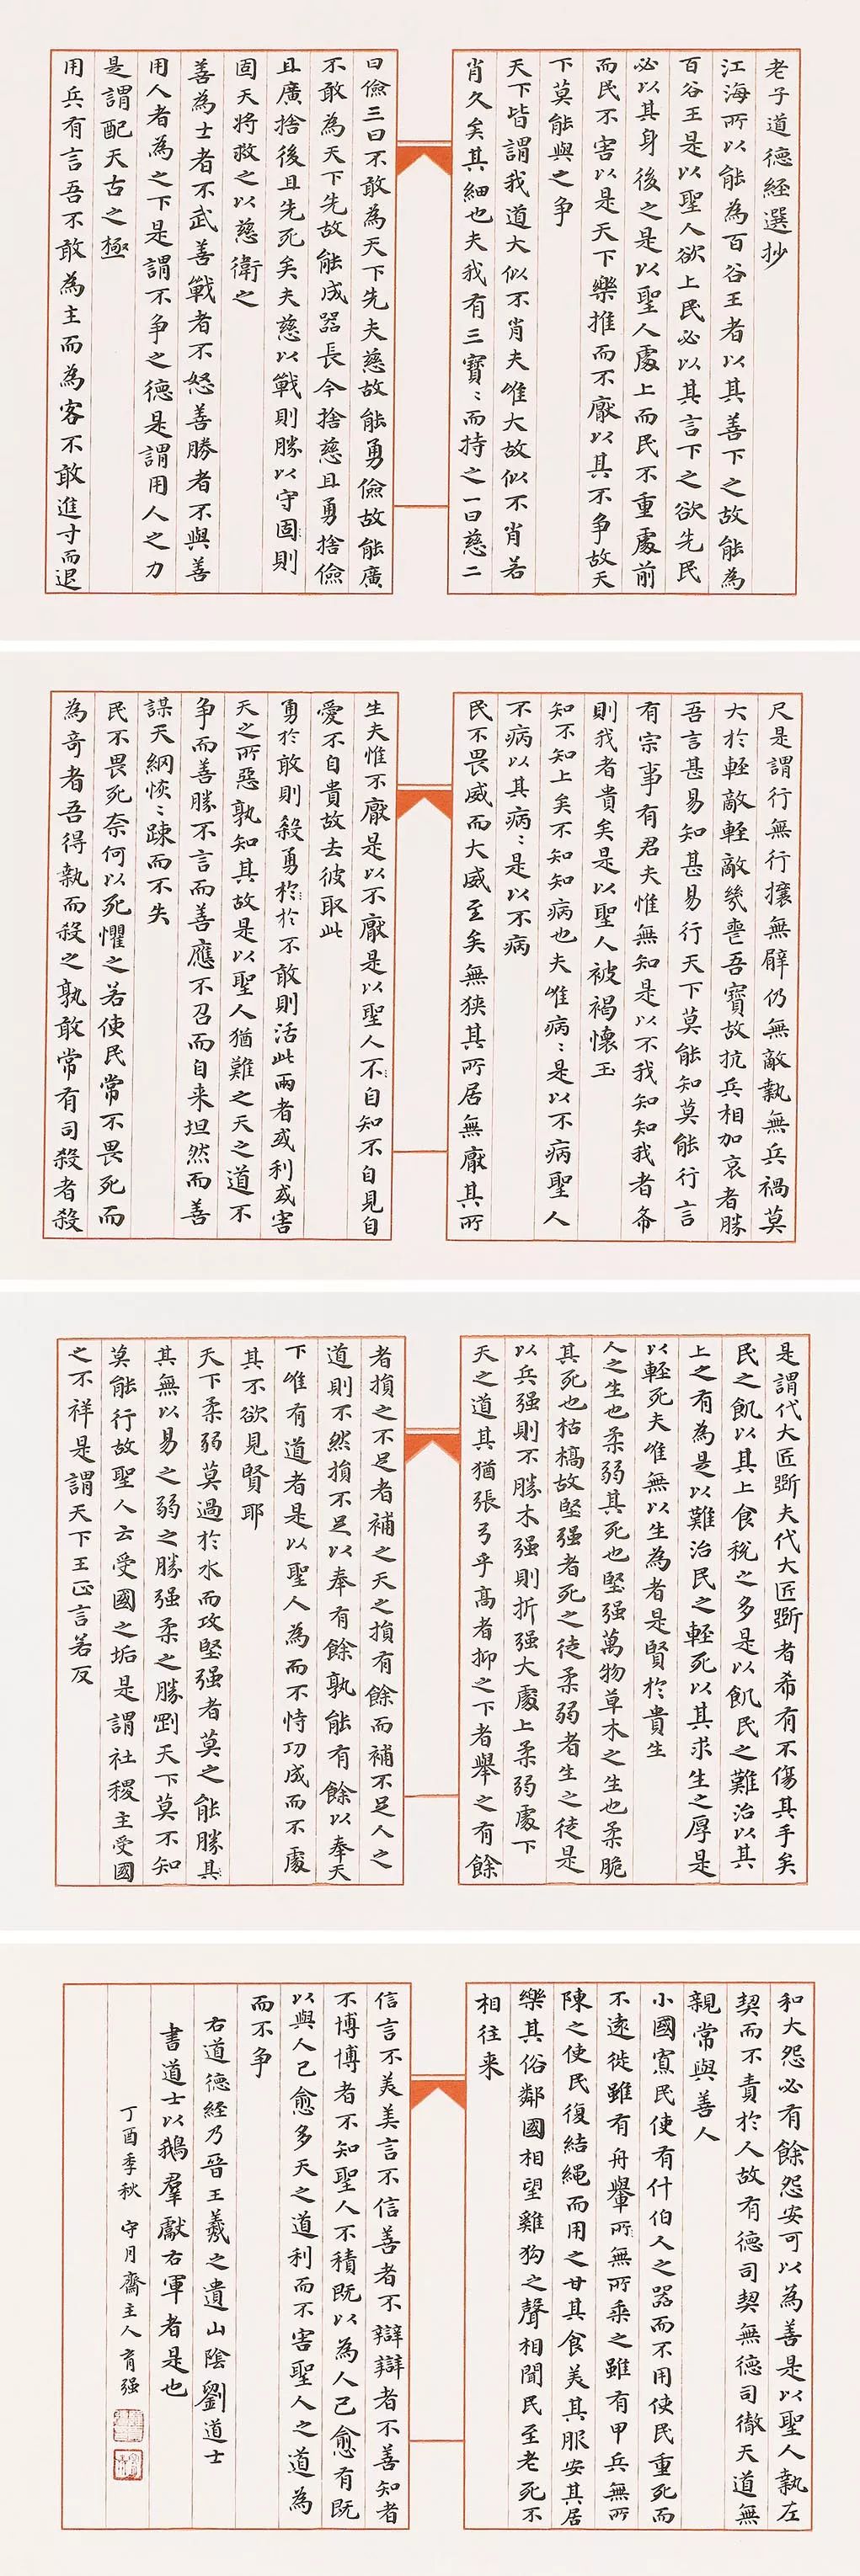 老子道德經選抄
江海所以能為百谷王者以其善下之故能為
百谷王是以聖人欲上民必以其言下之欲先民
必以其身後之是以聖人處上而民不重處前
而民不害以是天下樂推而不厭以其不争故天
下莫能與之争
天下皆謂我道大似不肖夫唯大故似不肖若
肖久矣其細也夫我有三寶〻而持之一曰慈二
曰儉三曰不敢為天下先夫慈故能勇儉故能廣
不敢為天下先故能成器長今捨慈且勇捨儉
且廣捨後且先死矣夫慈以戰則勝以守固則
固天将救之以慈衛之
善為士者不武善戰者不怒善勝者不與善
用人者為之下是謂不争之德是謂用人之力
是謂配天古之極
用兵有言吾不敢為主而為客不敢進寸而退
尺是謂行無行攘無臂仍無敵執無兵禍莫
大於輕敵輕敵幾喪吾寶故抗兵相加哀者勝
吾言甚易知甚易行天下莫能知莫能行言
有宗事有君夫惟無知是以不我知知我者希
則我者貴矣是以聖人被褐懷玉
知不知上矣不知知病也夫唯病〻是以不病聖人
不病以其病〻是以不病
民不畏威而大威至矣無狹其所居無厭其所
生夫惟不厭是以不厭是以聖人不自知不自見自
愛不自貴故去彼取此
勇於敢則殺勇於於不敢則活此兩者或利或害
天之所惡孰知其故是以聖人猶難之天之道不
争而善勝不言而善應不召而自来坦然而善
謀天網恢〻踈而不失
民不畏死奈何以死懼之若使民常不畏死而
為奇者吾得執而殺之孰敢常有司殺者殺
是謂代大匠斵夫代大匠斵者希有不傷其手矣
民之飢以其上食稅之多是以飢民之難治以其
上之有為是以難治民之輕死以其求生之厚是
以輕死夫唯無以生為者是賢於貴生
人之生也柔弱其死也堅强萬物草木之生也柔脆
其死也枯槁故堅强者死之徒柔弱者生之徒是
以兵强則不勝木强則折强大處上柔弱處下
天之道其猶張弓乎高者抑之下者舉之有餘
者損之不足者補之天之損有餘而補不足人之
道則不然損不足以奉有餘孰能有餘以奉天
下唯有道者是以聖人為而不恃功成而不處
其不欲見賢耶
天下柔弱莫過於水而攻堅强者莫之能勝其
其無以易之弱之勝强柔之勝剛天下莫不知
莫能行故聖人云受國之垢是謂社稷主受國
之不祥是謂天下王正言若反
和大怨必有餘怨安可以為善是以聖人執左
契而不責於人故有德司契無德司徹天道無
親常與善人
小國寡民使有什伯人之器而不用使民重死而
不遠徙雖有舟轝所無所乘之雖有甲兵無所
陳之使民復結繩而用之甘其食美其服安其居
樂其俗鄰國相望雞狗之聲相聞民至老死不
相往来
信言不美美言不信善者不辯辯者不善知者
不博博者不知聖人不積既以為人己愈有既
以與人己愈多天之道利而不害聖人之道為
而不争
右道德經乃晉王羲之遺山陰劉道士
書道士以鵝羣獻右軍者是也
丁酉季秋 守月齋主人育强